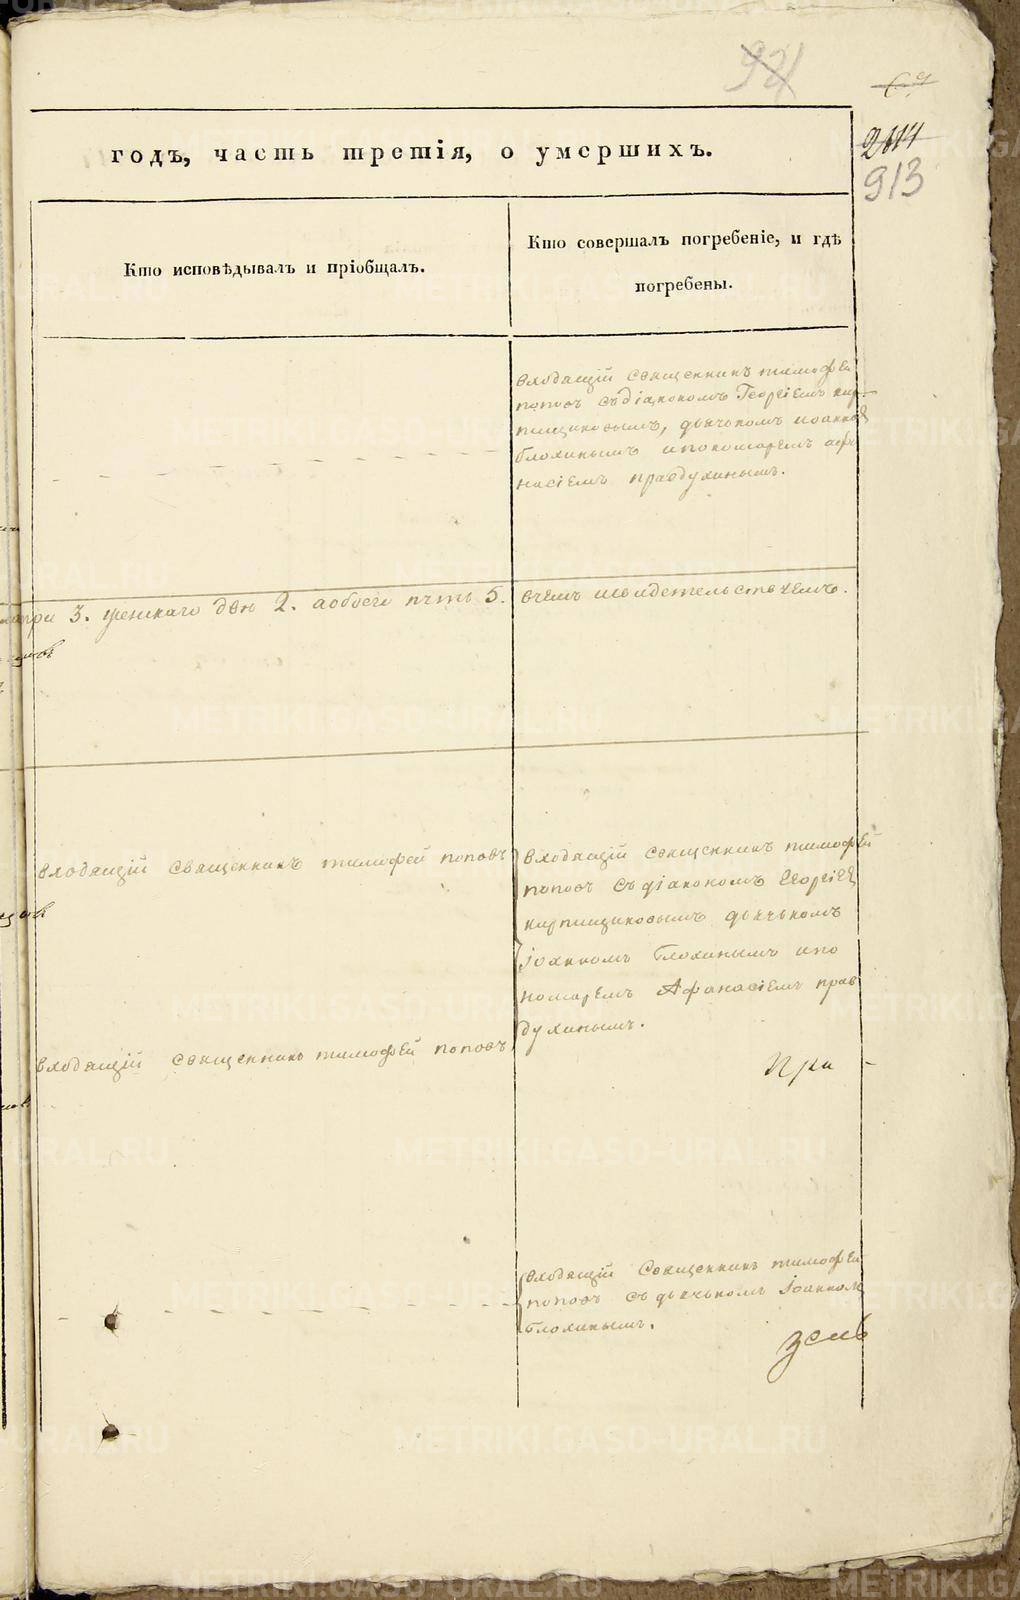 921
69
годъ, часть третія, о умершихъ.
2114
913
Кто исповѣдывалъ и пріобщалъ.
Кто совершалъ погребеніе, и гдѣ
погребены.
входящій священникъ тимофеи
поповъ съ діакономъ Георгіемъ кир-
пищиковымъ, дьячькомъ иоанном
блохинымъ и пономаремъ афа
насіемъ правдухинымъ.
при 3. женскаго две 2. а обоего пять 5. в чемъ и свидетельствуемъ.
входящій священникъ тимофей поповъ
входящій священникъ тимофей
поповъ съ діакономъ Георгіем
кирпищиковымъ дьячькомъ
Іоанномъ блохинымъ и по
номаремъ Афанасіемъ прав
духинымъ.
входящій священникъ тимофей поповъ
При
входящій священникъ тимофей
поповъ съ дьячькомъ Іоанном
блохинымъ.
METRIKI.GASO-URAL.RU